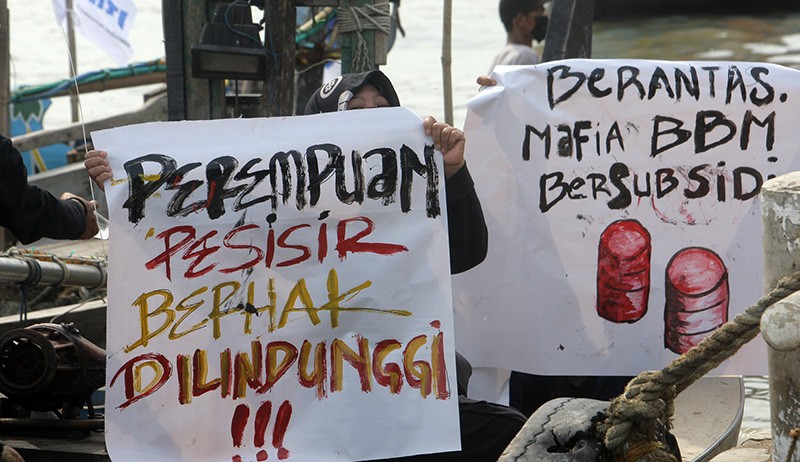 PEREMPUAN
PESISIR
BERHAK
DILINDUNGI
!!!
BERANTAS.
MAFIA BBM
BERSUBSIDI